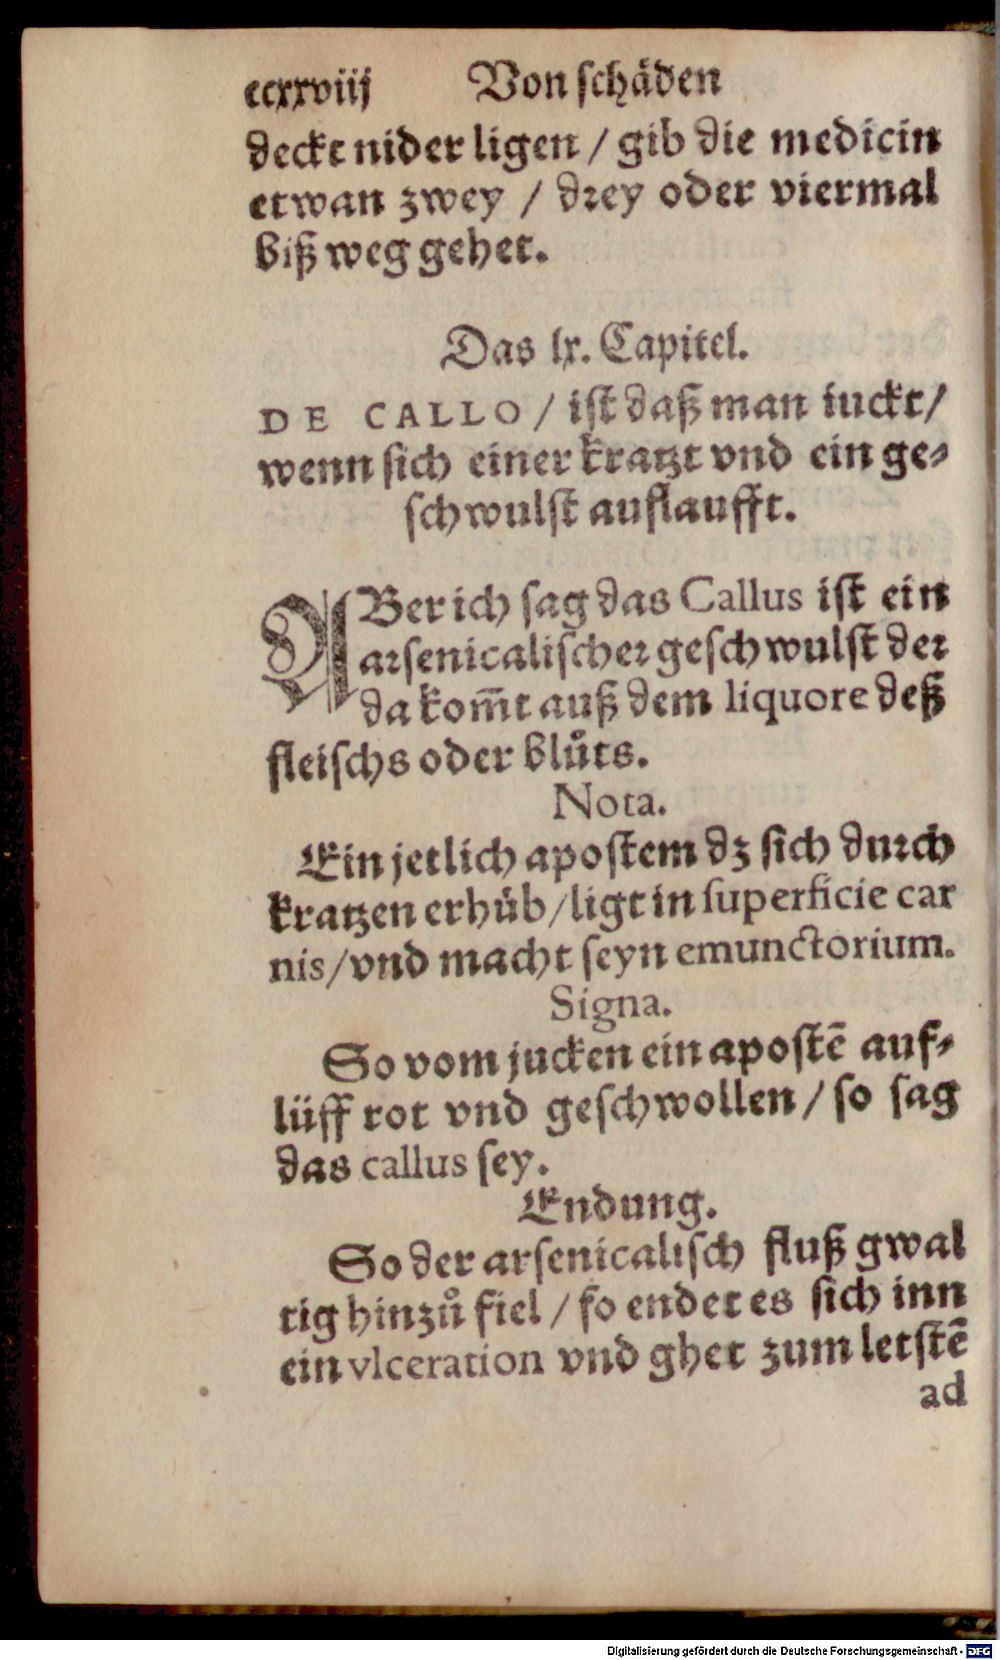 ccxxviij Von ſchäden
deckt nider ligen / gib die medicin
etwan zwey / drey oder viermal
biß weg gehet.
Das lx. Capitel.
DE CALLO / iſt daß man iuckt /
wenn ſich einer kratzt vnd ein ge⸗
ſchwulſt auflaufft.
ABer ich ſag das Callus iſt ein
arſenicaliſcher geſchwulſt der
da kom̃t auß dem liquore deß
fleiſchs oder blůts.
Nota.
Ein jetlich apoſtem dz ſich durch
kratzen erhüb / ligt in ſuperficie car
nis / vnd macht ſeyn emunctorium.
Signa.
So vom jucken ein apoſtē auf⸗
lüff rot vnd geſchwollen / ſo ſag
das callus ſey.
Endung.
So der arſenicaliſch fluß gwal
tig hinzů fiel / ſo endet es ſich inn
ein vlceration vnd ghet zum letſtē
ad
Digitalisierung gefördert durch die Deutsche Forschungsgemeinschaft - DFG